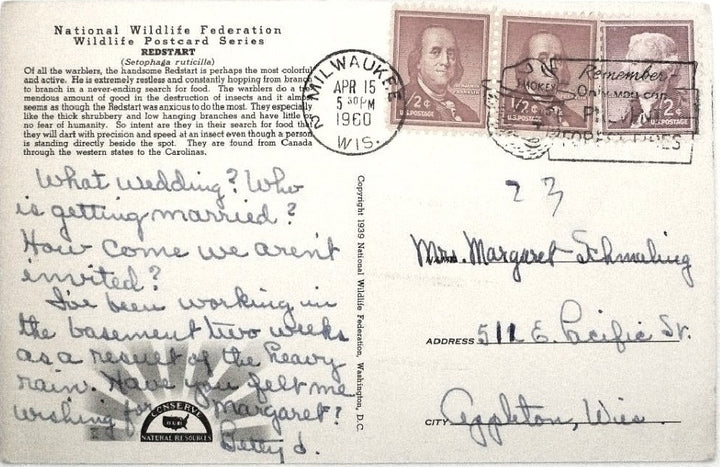 National Wildlife Federation
Wildlife Postcard Series
REDSTART
(Setophaga ruticilla)
Of all the warblers, the handsome Redstart is perhaps the most colorful
and active. He is extremely restless and constantly hopping from branch
to branch in a never-ending search for food. The warblers do a tre-
mendous amount of good in the destruction of insects and it almost
seems as though the Redstart was anxious to do the most. They especially
like the thick shrubbery and low hanging branches and have little or
no fear of humanity. So intent are they in their search for food that
they will dart with precision and speed at an insect even though a person
is standing directly beside the spot. They are found from Canada
through the western states to the Carolinas.
What wedding? Who
is getting married?
How come we aren't
invited?
I've been working in
the basement two weeks
as a result of the heavy
rain. Have you felt me
wishing for Margaret?
Betty J.
CONSERVE
OUR
NATURAL RESOURCES
Copyright 1939 National Wildlife Federation, Washington, D.C.
MILWAUKEE
2
APR 15
5 30 PM
1960
WIS.
1/2¢ U.S. POSTAGE
1/2¢ U.S. POSTAGE
2¢ U.S. POSTAGE
SMOKEY
Remember-
Only you can
FOREST FIRES
23
Mrs. Margaret Schmaling
ADDRESS 511 E. Pacific St.
CITY Appleton, Wis.